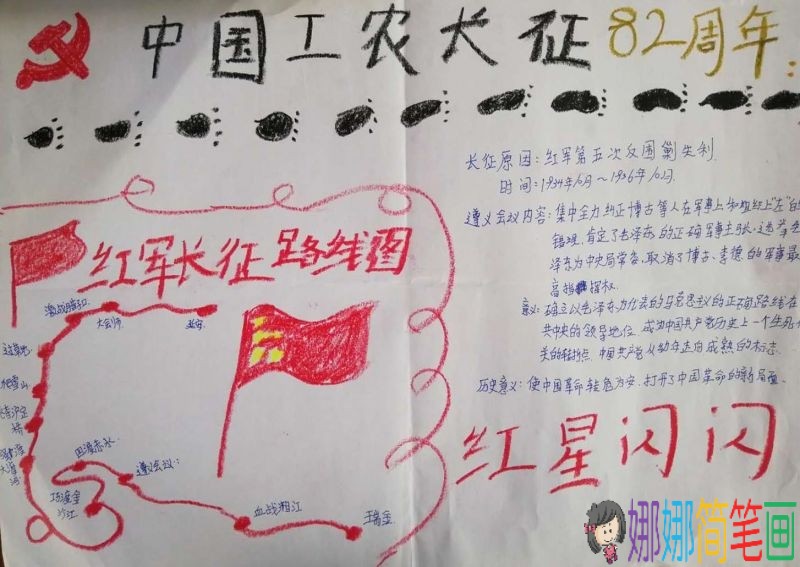 中国工农长征82周年:
长征原因:红军第五次反围剿失利.
时间:1934年10月~1936年10月.
遵义会议内容:集中全力纠正博古等人在军事上和组织上"左"的
错误,肯定了毛泽东的正确军事主张.选举毛
泽东为中央局常委,取消了博古、李德的军事最
高指挥权.
意义:确立以毛泽东为代表的马克思主义的正确路线在
共中央的领导地位,成为中国共产党历史上一个生死
关的转折点,中国共产党从幼年走向成熟的标志.
历史意义:使中国革命转危为安,打开了中国革命的新局面.
红军长征路线图
激战腊子口
大会师
过草地
爬雪山
飞夺泸定
桥
强渡
大渡
河
巧渡金
沙江
四渡赤水
遵义会议:
血战湘江
瑞金
红星闪闪
娜娜简笔画